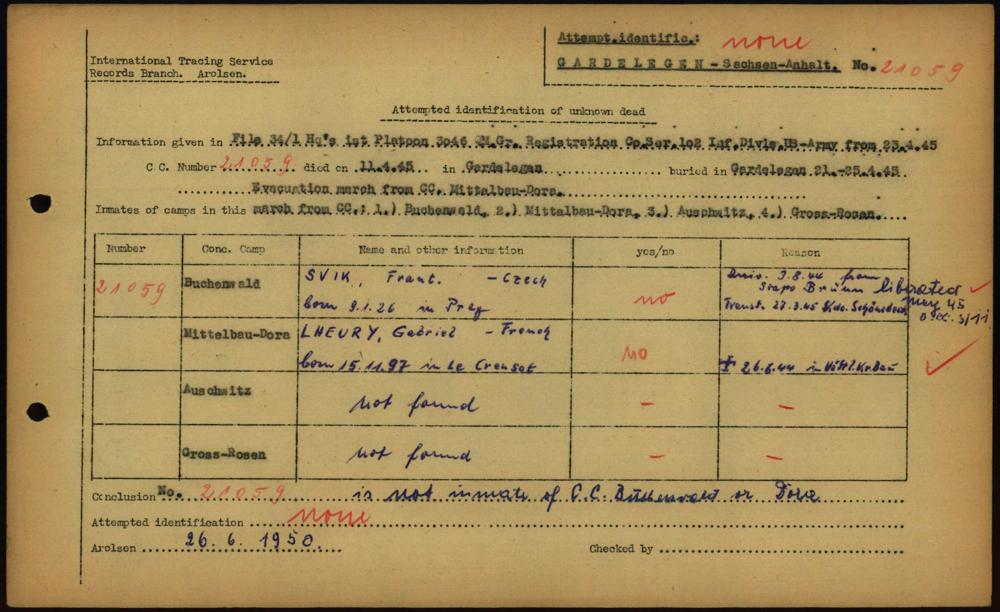 Attempt.identific.: none
International Tracing Service
Records Branch. Arolsen.
GARDELEGEN - Sachsen-Anhalt. No. 21059
Attempted identification of unknown dead
Information given in File 34/1 Hq's 1st Platoon 3046 QM.Gr. Registration Co.Ser.102 Inf.Divis.US-Army from 25.4.45
C.C. Number 21059 died on 11.4.45 in Gardelegen buried in Gardelegen 21.-25.4.45
Evacuation march from CC. Mittelbau-Dora.
Inmates of camps in this march from CC.: 1.) Buchenwald, 2.) Mittelbau-Dora, 3.) Auschwitz, 4.) Gross-Rosen.
Number Conc. Camp Name and other information yes/no Reason
21059 Buchenwald SVIK, Frant. - Czech no 3.8.44 from
Stapo Brünn liberated
born 9.1.26 in Prag Transt. 27.3.45 Kdo. Schönebeck May 45
Mittelbau-Dora LHEURY, Gabriel - French no
born 15.11.97 in Le Creusot 26.6.44 in
Auschwitz not found - -
Gross-Rosen not found - -
Conclusion No. 21059 is not inmate of C.C. Buchenwald or Dora
Attempted identification none
Arolsen 26. 6. 1950. Checked by